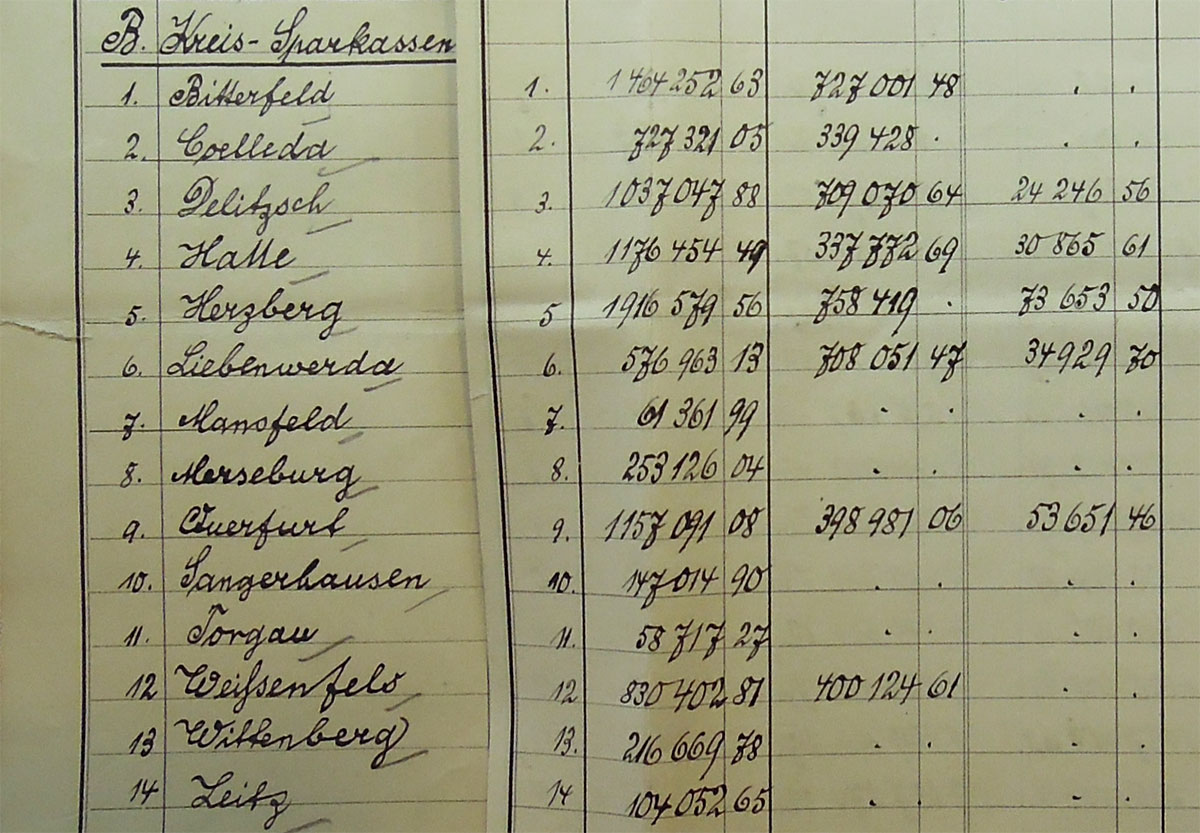 B. Kreis-Sparkassen
1. Bitterfeld 1. 1 464 252 63 727 001 48 . .
2. Coelleda 2. 727 321 05 339 428 . . .
3. Delitzsch 3. 1 037 047 88 709 070 64 24 246 56
4. Halle 4. 1176 454 49 337 772 69 30 865 61
5. Herzberg 5 1 916 579 56 758 419 . 73 653 50
6. Liebenwerda 6. 576 963 13 708 051 47 34 929 70
7. Mansfeld 7. 61 361 99 . . . .
8. Merseburg 8. 253 126 04 . . . .
9. Querfurt 9. 1157 091 08 398 981 06 53 651 46
10. Sangerhausen 10. 147 014 90 . . . .
11. Torgau 11. 58 717 27 . . . .
12 Weißenfels 12 830 402 81 400 124 61 . .
13 Wittenberg 13. 216 669 78 . . . .
14 Zeitz 14 104 052 65 . . . .